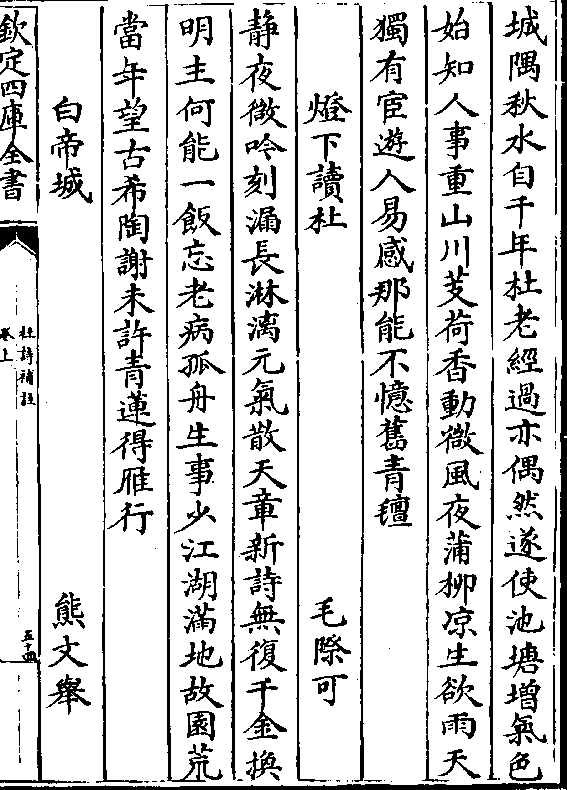 城隅秋水自千年杜老經過亦偶然遂使池塘增氣色
始知人事重山川芰荷香動微風夜蒲柳凉生欲雨天
獨有宦遊人易感那能不憶舊青氊
燈下讀杜 毛際可
静夜微吟刻漏長淋漓元氣散天章新詩無復千金換
明主何能一飯忘老病孤舟生事少江湖滿地故園荒
當年望古希陶謝未許青蓮得雁行
白帝城 熊文舉
欽定四庫全書
杜詩補註
卷上
五十四